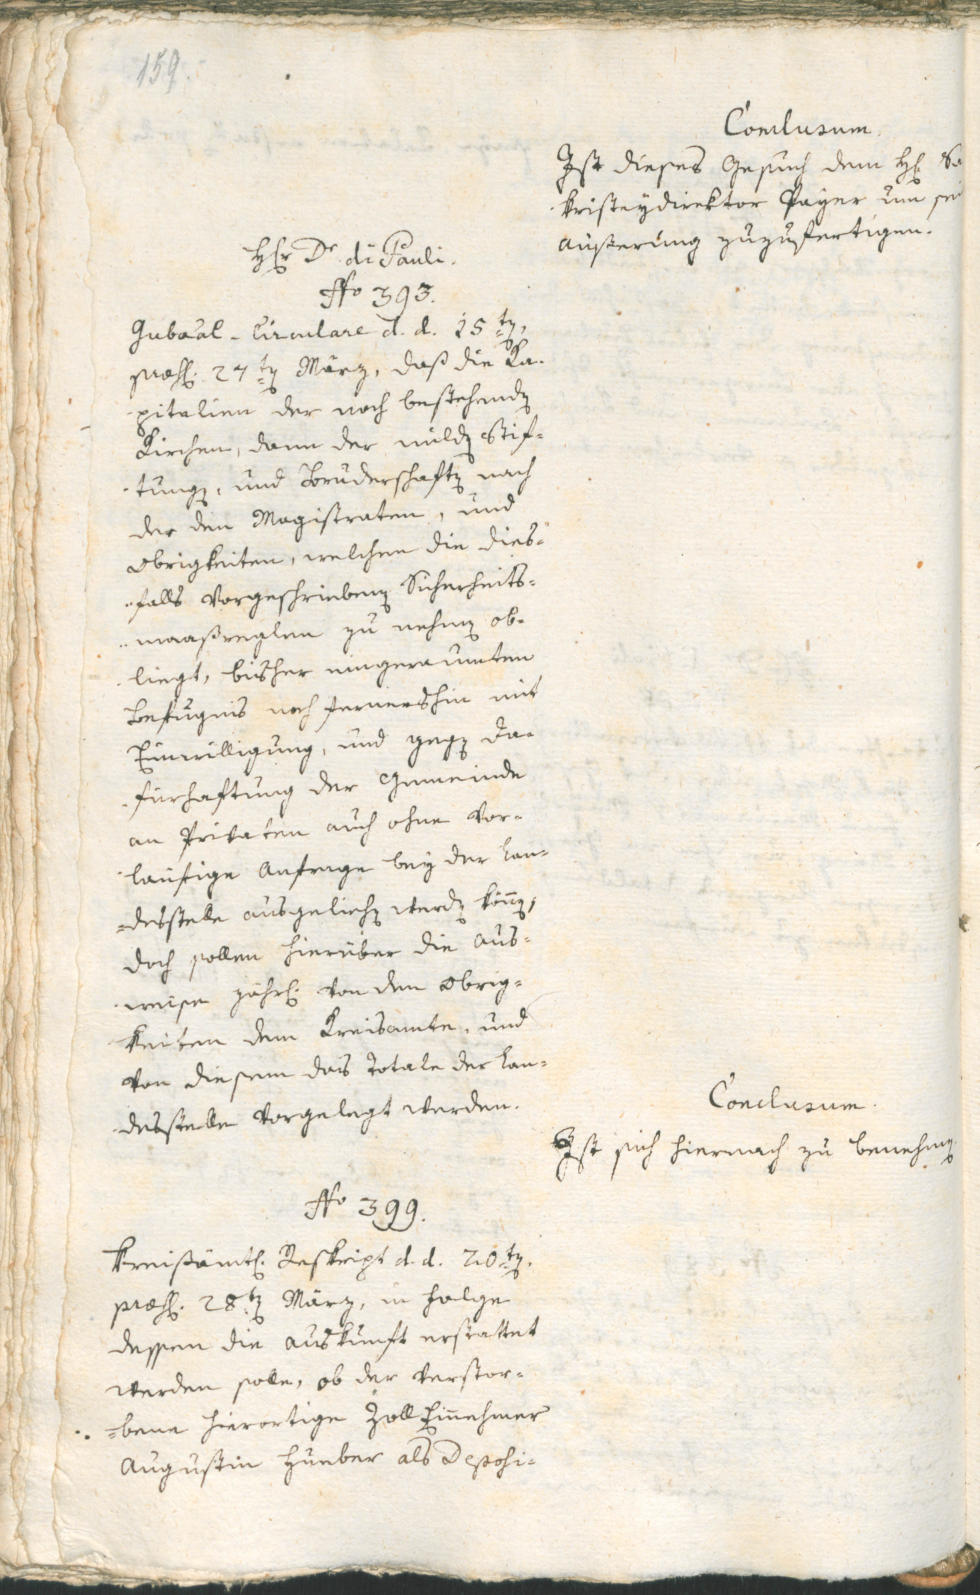 159.
Conclusum.
Ist dieses Gesuch dem H: Sa
kristeydirektor Payer um sei
Äußerung zuzufertigen.
Hr Dr. di Pauli.
No 393.
Gubaal-Circulare d. d. 15ten,
præs: 27ten März, daß die Ka-
pitalien der noch bestehenden
Kirchen, dann der milden Stif-
tungen, und Bruderschaften nach
der den Magistraten, und
Obrigkeiten, welchen die dies-
falls vorgeschriebenen Sicherheits-
maaßreglen zu nehmen ob-
liegt, bisher eingeraumten
Befugnis noch fernershin mit
Einwilligung, und gegen Da-
fürhaftung der Gemeinde
an Privaten auch ohne vor-
läufige Anfrage bey der Lan-
desstelle ausgeliehen werden können,
doch sollen hierüber die Aus-
weise jährl: von den Obrig-
keiten dem Kreisamte, und
von diesem das Totale der Lan-
desstelle vorgelegt werden.
Conclusum.
Ist sich hiernach zu benehmen
No 399.
Kreisämtl: Reskript d. d. 20ten,
præs: 28ten März, in Folge
dessen die Auskunft erstattet
werden solle, ob der verstor-
bene hierortige Zoll Einnehmer
Augustin Hueber als Deposi-